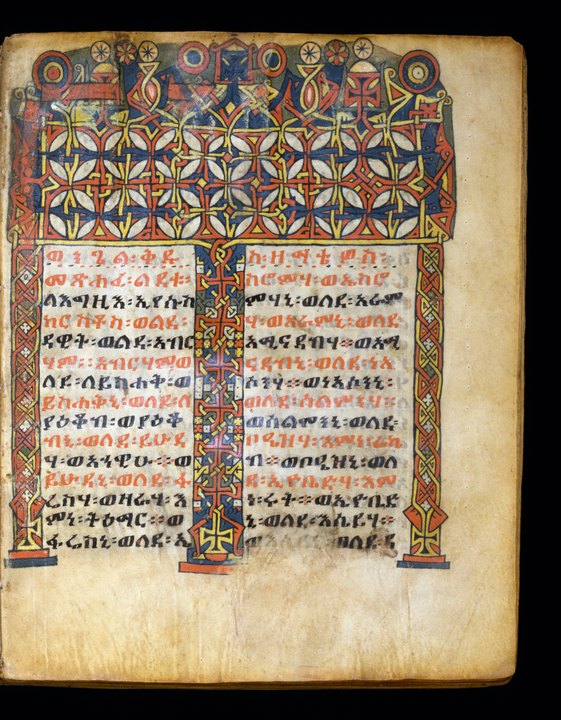 ወንጌል፡ቅዱ
መጽሐፈ፡ልደቱ፡
ለእግዚእ፡ኢየሱስ
ክርስቶስ፡ወልደ፡
ዳዊት፡ወልደ፡አብር
ሃም፡፡አብርሃምወ
ለደ፡ለይስሐቅ፡ወ
ይስሐቅኒ፡ወለደ፡ለ
ያዕቆብ፡ወያዕቆ
ብኒ፡ወለደ፡ይሁዳ
ሃ፡ወአኀዊሁ፡፡ወ
ይሁዳኒ፡ወለደ፡ፋ
ሬስሃ፡ወዛራሃ፡እ
ምኒ፡ትዕማር፡፡ወ
ፋሬስኒ፡ወለደ፡ኤ
ስ፡ዘማቴዎስ፡
ስሮምሃ፡ወኤስሮ
ምሃኒ፡ወለደ፡አራም
ሃ፡ወአራምኒ፡ወለደ
አሚናዳብሃ፡ወአሚ
ናዳብኒ፡ወለደ፡ነአ
ሶንሃ፡፡ወነአሶንኒ፡
ወለደ፡ሰልሞንሃ፡፡
ወሰልሞንኒ፡ወለደ፡
ቦዔዝሃ፡እምኒ፡ራኬ
ብ፡፡ወቦዔዝኒ፡ወለ
ደ፡ኢዮቤድሃ፡እም
ኒ፡ሩት፡፡ወኢዮቤድ
ኒ፡ወለደ፡እሴይሃ፡፡
ወለደ፡ዳ